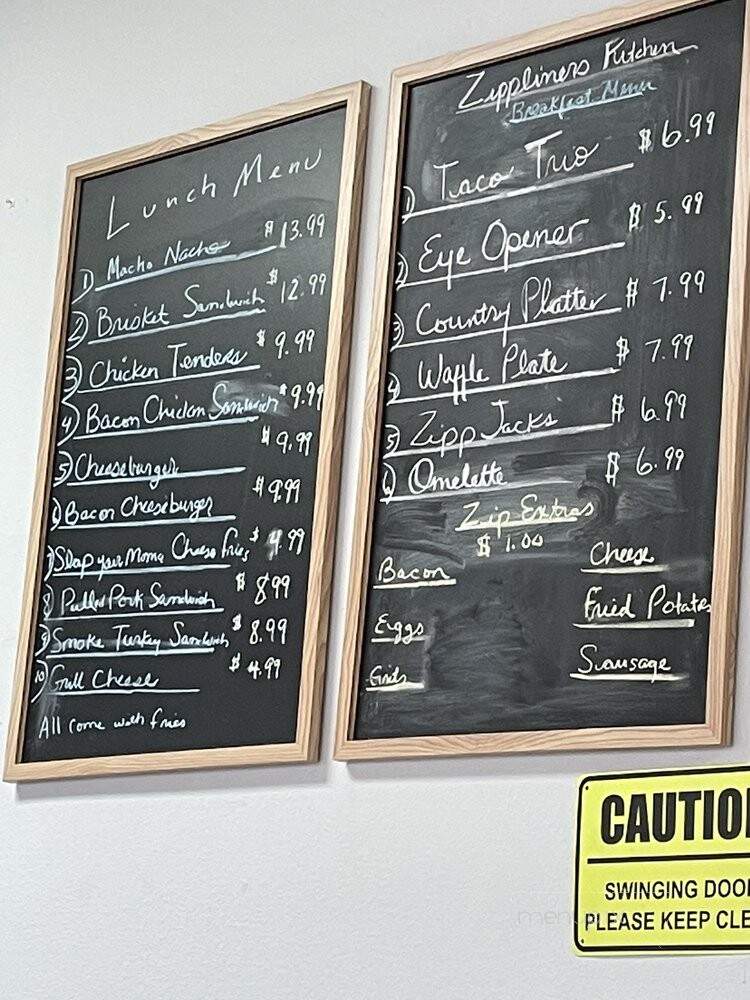 Lunch Menu
1) Macho Nacho $13.99
2) Brisket Sandwich $12.99
3) Chicken Tenders $9.99
4) Bacon Chicken Sandwich $9.99
5) Cheeseburger $9.99
6) Bacon Cheeseburger $9.99
7) Slap your Moma Cheese fries $4.99
8) Pulled Pork Sandwich $8.99
9) Smoke Turkey Sandwich $8.99
10) Grill Cheese $4.99
All come with fries
Zippliners Kitchen
Breakfast Menu
1) Taco Trio $6.99
2) Eye Opener $5.99
3) Country Platter $7.99
4) Waffle Plate $7.99
5) Zipp Jacks $6.99
6) Omelette $6.99
Zip Extras
$1.00
Bacon Cheese
Eggs Fried Potatos
Grits Sausage
CAUTIO
SWINGING DOO
PLEASE KEEP CLE